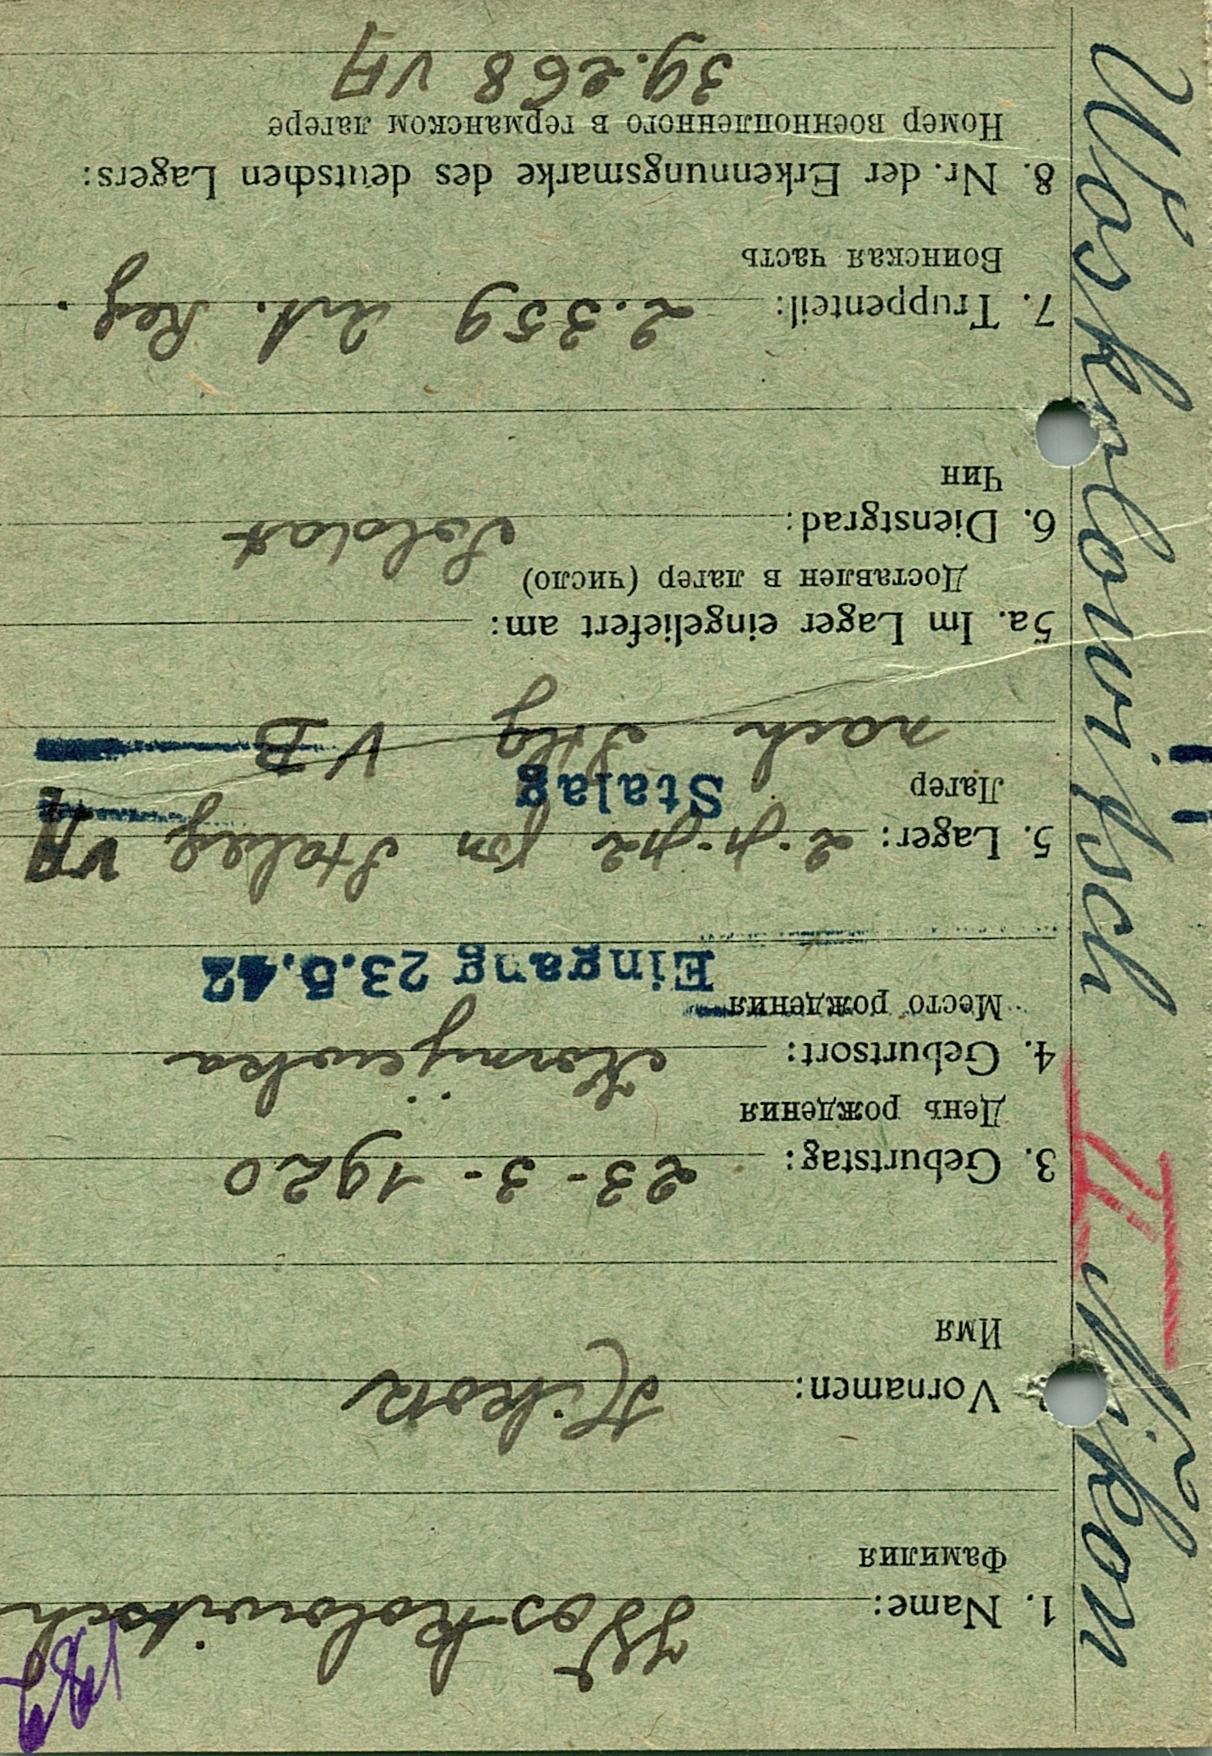 Woskolowitsch Nikon
II
1. Name: Woskolowitsch
Фамилия
Vornamen: Nikon
Имя
3. Geburtstag: 23-3-1920
День рождения
4. Geburtsort:
Место рождения
Eingang 23.5.42
5. Lager: Stalag VA
Лагер
Stalag
nach Stlg V B
5a. Im Lager eingeliefert am:
Доставлен в лагер (число)
6. Dienstgrad: Soldat
Чин
7. Truppenteil: 2.359 Reg.
Воинская часть
8. Nr. der Erkennungsmarke des deutschen Lagers:
Номер военнопленного в германском лагере
39.268 VA